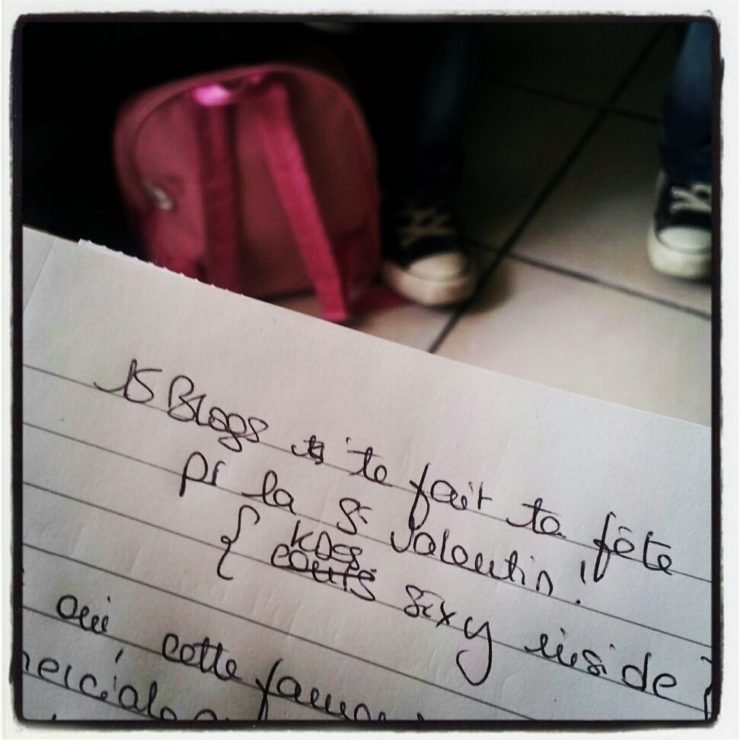 Blogs te fait ta fête
pr la St Valentin !
{ KDOS sexy inside }
oui, cette fameu
merciale